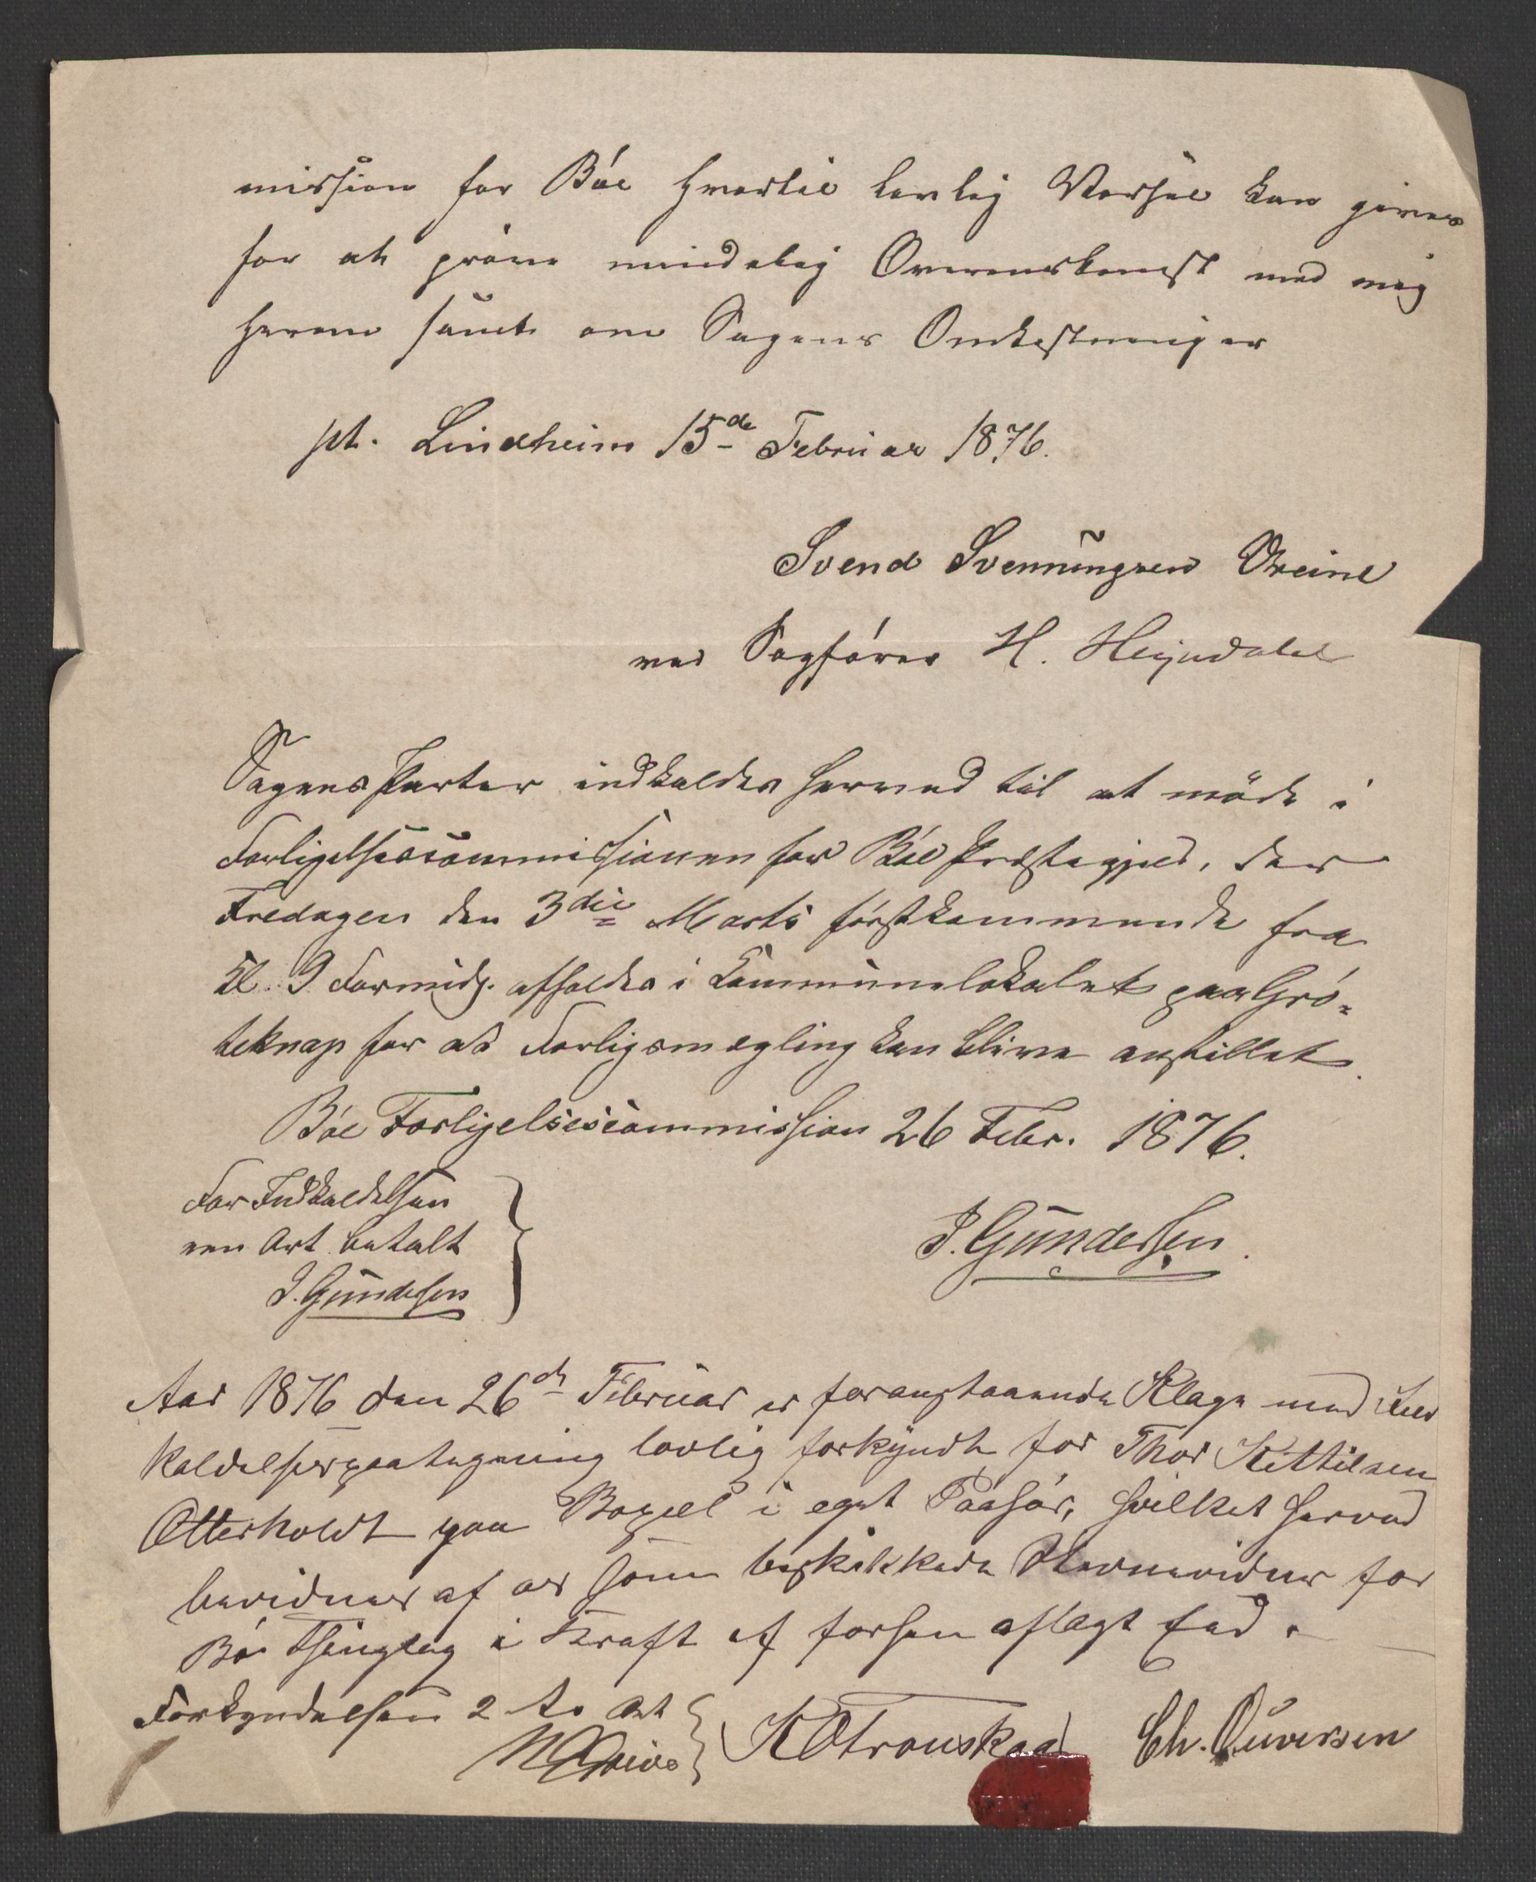 mission for Böe hvortil lovlig Varsel kan gives
for at pröve mindelig Overenskomst med mig
herom samt om Sagens Omkostninger
pt. Lindheim 15de Februar 1876.
Svend Svennungsen Oreine
ved Sagförer H. Heyndahl
Sagens Parter indkaldes herved til at möde i
Forligelsescommissionen for Böe Præstegjeld, der
Fredagen den 3die Marts förstkommende fra
Kl. 9 Formidg. afholdes i Communelokalet paa Grö-
teknap for at Forligsmægling kan blive anstillet.
Böe Forligelsescommission 26 Febr. 1876.
For Indkaldelsen
een Ort betalt
J. Gundersen
J. Gundersen.
Aar 1876 den 26de Februar er foranstaaende Klage med Ind
kaldelsespaategning lovlig forkyndt for Thor Kittilsen
Otterholdt paa Bopæl i eget Paahör, hvilket herved
bevidnes af os som beskikkede Stevnevidner for
Bö Thinglag i Kraft af forhen aflagt Eed.
Forkyndelsen 2 to Ort
Ch. Ouversen